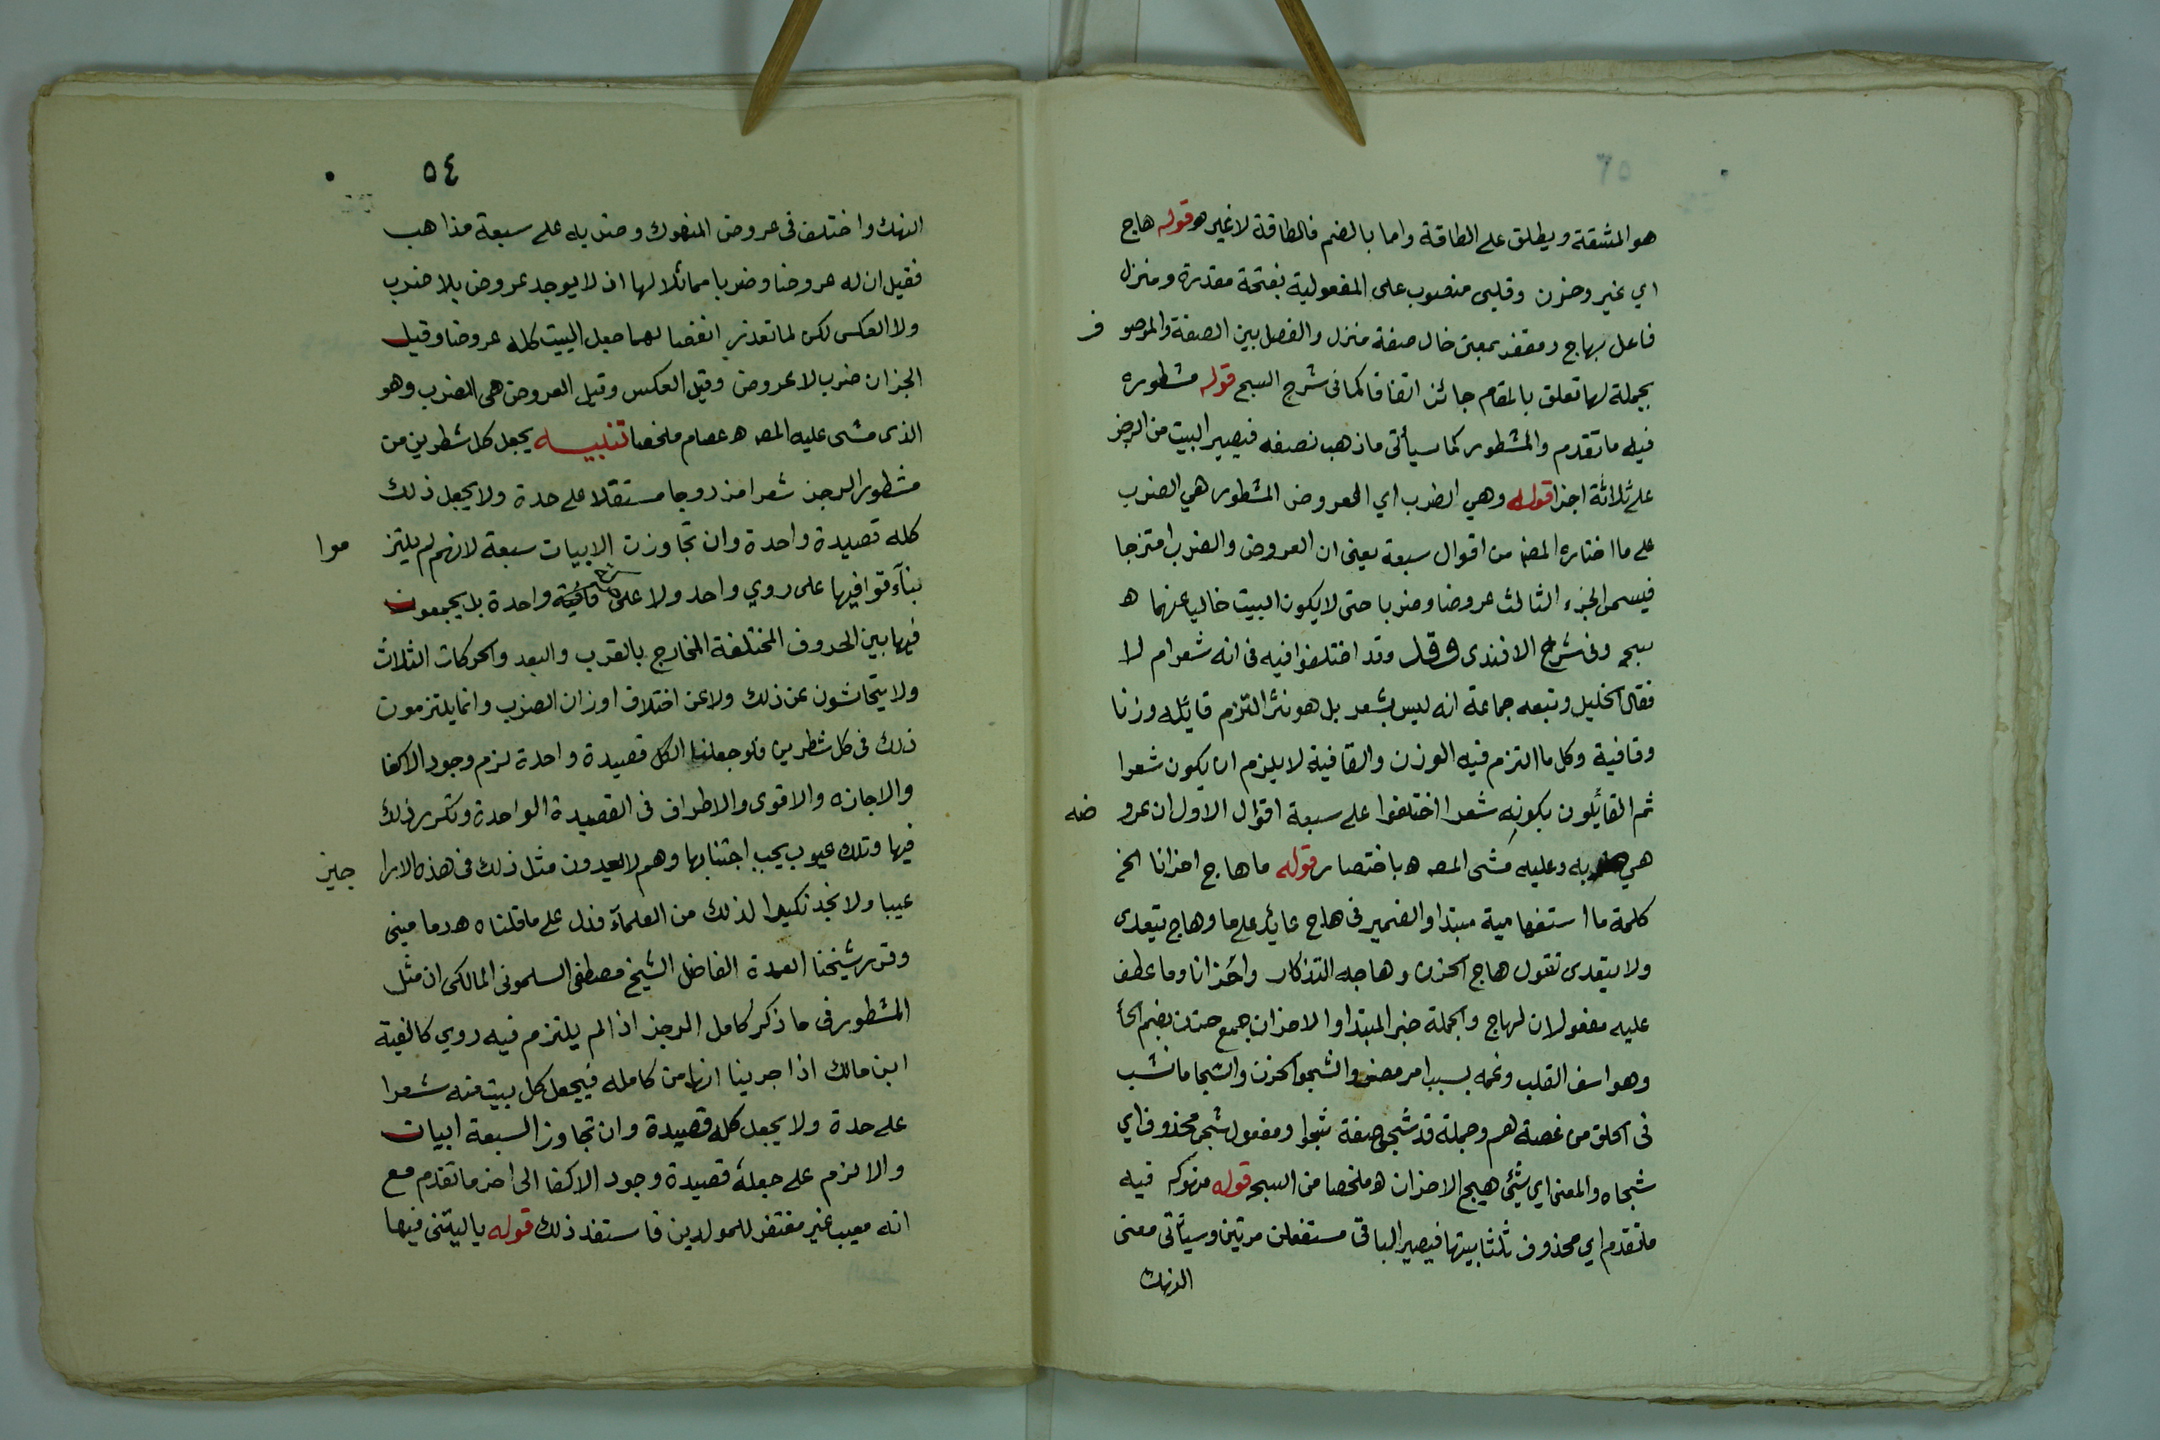 هو المشقة ويطلق على الطاقة واما بالضم فالطاقة لا غير ه قوله هاج
اي غير وحزن وقلبى منصوب على المفعولية بفتحة مقدرة ومنزل
فاعل بهاج ومقفر بمعنى خال صفة منزل والفصل بين الصفة والموصو ف
بجملة لها تعلق بالمقام جائز اتفاقا كما فى شرح السبح قوله مشطوره
فيه ما تقدم والمشطور كما سيأتى ما ذهب نصفه فيصير البيت من الرجز
على ثلاثة اجزا قوله وهي الضرب اي العروض المشطور هي الضرب
على ما اختاره المصه من اقوال سبعة يعنى ان العروض والضرب امتزجا
فيسمى الجزء الثالث عروضا وضربا حتى لا يكون البيت خاليا عنهما ه
سبح وفى شرح الافندى وقد اختلفوا فيه فى انه شعر ام لا
فقال الخليل وتبعه جماعة انه ليس بشعر بل هو نثر التزم قائله وزنا
وقافية وكل ما التزم فيه الوزن والقافية لا يلزم ان يكون شعرا
ثم القائلون بكونه شعرا اختلفوا على سبعة اقوال الاول ان عرو ضه
هي ضربه وعليه مشى المصه ه باختصار قوله ما هاج احزانا الخ
كلمة ما استفهامية مبتدا والضمير فى هاج عايد على ما وهاج يتعدى
ولا يتعدى تقول هاج الحزن وهاجه التذكار واحزانا وما عطف
عليه مفعولان لهاج والجملة خبر المبتدا والاحزان جمع حزن بضم الحأ
وهو اسف القلب وغمه بسبب امر مضى والشجو الحزن والشجا ما نشب
فى الحلق من غصة لهم وجملة قد شجى صفة شجوا ومفعول شجى محذوف اي
شجاه والمعنى اي شئ هيج الاحزان ه ملخصا من السبح قوله منهوكه فيه
ما تقدم اي محذوف ثلثا بيتها فيصير الباقى مستفعلن مرتين وسيأتى معنى
النهك
٥٤
النهك واختلف فى عروض المنهوك وضربه على سبعة مذاهب
فقيل ان له عروضا وضربا مماثلا لها اذ لا يوجد عروض بلا ضرب
ولا العكس لكن لما تعذر انفصالهما جعل البيت كله عروضا وقيل
الجزان ضرب لا عروض وقيل العكس وقيل العروض هى الضرب وهو
الذى مشى عليه المصه ه عصام ملخصا تنبيه يجعل كل شطرين من
مشطور الرجز شعرا مزدوجا مستقلا على حدة ولا يجعل ذلك
كله قصيدة واحدة وان تجاوزت الابيات سبعة لانهم لم يلتز موا
بنآء قوافيها على روي واحد ولا على قافية واحدة بل يجمعون
فيها بين الحروف المختلفة المخارج بالقرب والبعد والحركات الثلاث
ولا يتحاشون عن ذلك ولا عن اختلاف اوزان الضرب وانما يلتزمون
ذلك فى كل شطرين فلو جعلنا الكل قصيدة واحدة لزم وجود الاكفا
والاجازه والاقوى والاطراف فى القصيدة الواحدة وتكرر ذلك
فيها وتلك عيوب يجب اجتنابها وهم لا يعدون مثل ذلك فى هذه الارا جيز
عيبا ولا نجد نكيرا لذلك من العلمآء فدل على ما قلناه ه دمامينى
وقرر شيخنا العمدة الفاضل الشيخ مصطفى السلمونى المالكى ان مثل
المشطور فى ما ذكر كامل الرجز اذا لم يلتزم فيه روي كالفية
ابن مالك اذا جرينا انها من كامله فيجعل كل بيت منه شعرا
على حدة ولا يجعل كله قصيدة وان تجاوز السبعة ابيات
والا لزم على جعله قصيدة وجود الاكفا الى اخر ما تقدم مع
انه معيب غير مغتفر للمولدين فاستفد ذلك قوله يا ليتنى فيها